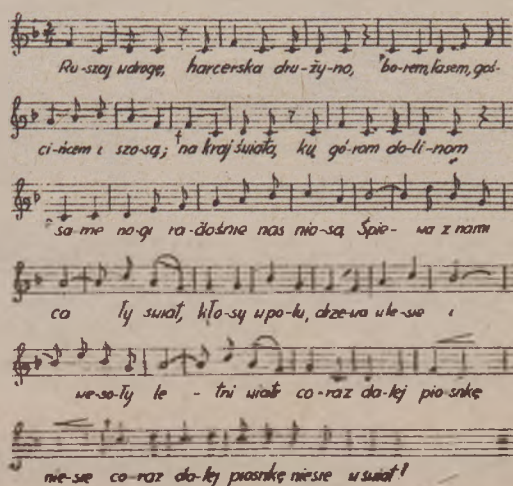 Ru-szaj w drogę, harcerska dru-ży-no, borem, lasem, goś-
ci-ńcem i szo-są; na kraj świata, ku gó-rom do-li-nom
sa-me no-gi ra-dośnie nas nio-są Śpie- wa z nami
ca ły świat, kło-sy w po-lu, drze-wa w le-sie i
we-so-ły le - tni wiatr co-raz da-lej pio-snkę
nie-sie co-raz da-lej piosnkę niesie w świat!